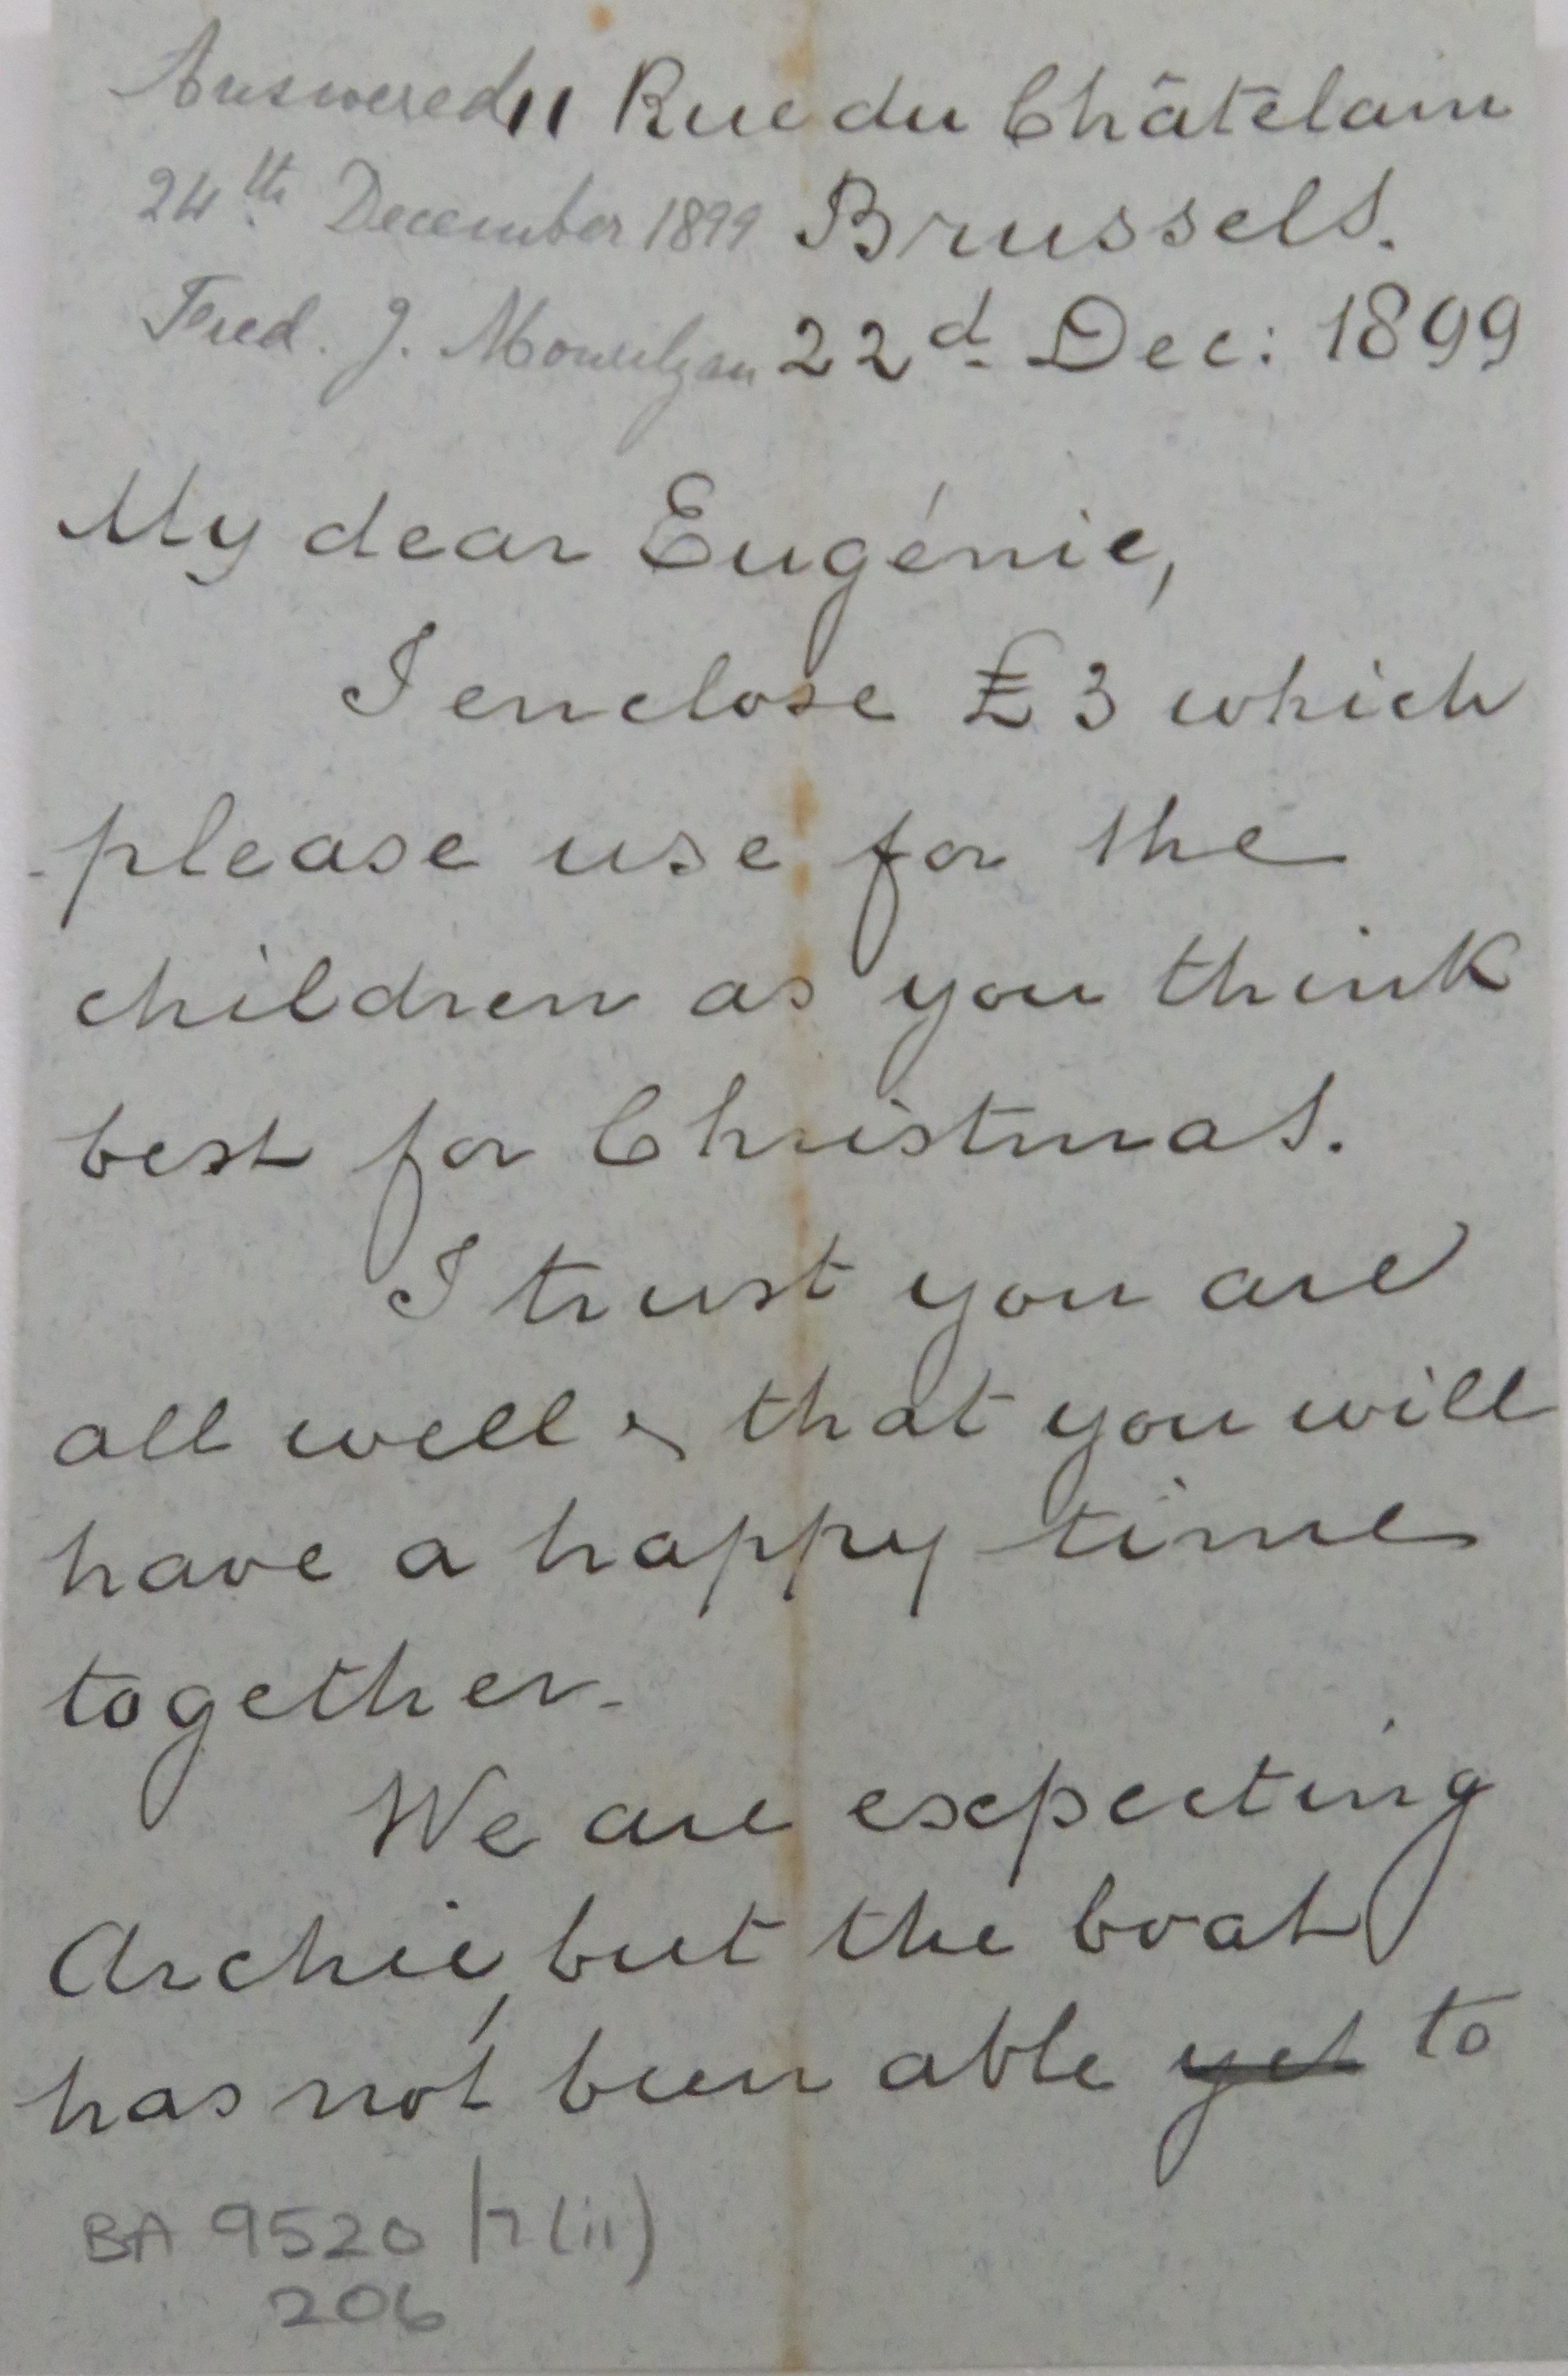 Answered 11 Rue du Châtelain
24th December 1899 Brussels.
Fred. J. 22d Dec: 1899
My dear Eugénie,
I enclose £3 which
please use for the
children as you think
best for Christmas.
I trust you are
all well & that you will
have a happy time
together.
We are expecting
Archie, but the boat
has not been able yet to
BA 9520 /7(ii)
206